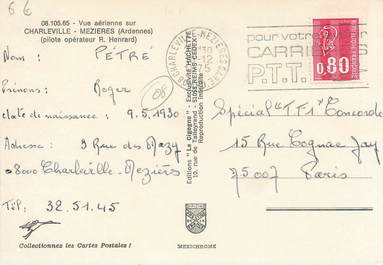 66
08.105.65 - Vue aérienne sur
CHARLEVILLE - MEZIERES (Ardennes)
(pilote opérateur R. Henrard)
Nom : PÉTRÉ
Prénoms : Roger
date de naissance : 9.5.1930
Adresse : 3 Rue des Mazy
08000 Charleville-Mezières
Tél : 32.51.45
Collectionnez les Cartes Postales !
08
Editions "La Cigogne" - Exclusivité HACHETTE
10, rue de Talleyrand - 51058 REIMS-CEDEX
Reproduction interdite
MEXICHROME
08 CHARLEVILLE-MEZIERES GARE
pour votre
CARRIE
P.T.T.
REPUBLIQUE FRANÇAISE
0,80
Spécial "TF1" Concorde
15 Rue Cognac Jay
75007 Paris